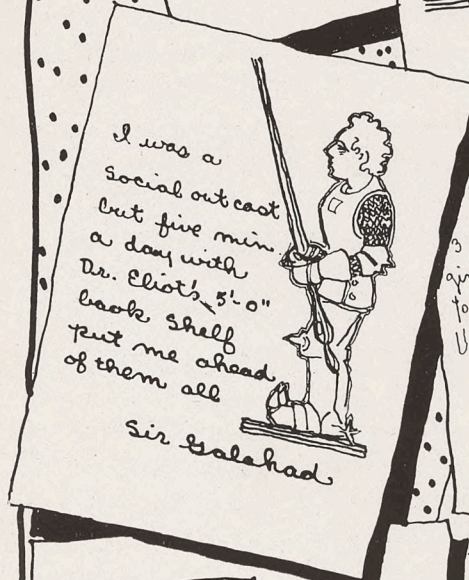 I was a
social outcast
but five min
a day with
Dr. Eliot's 5'-0"
book shelf
put me ahead
of them all
Sir Galahad
3
gi
to
U